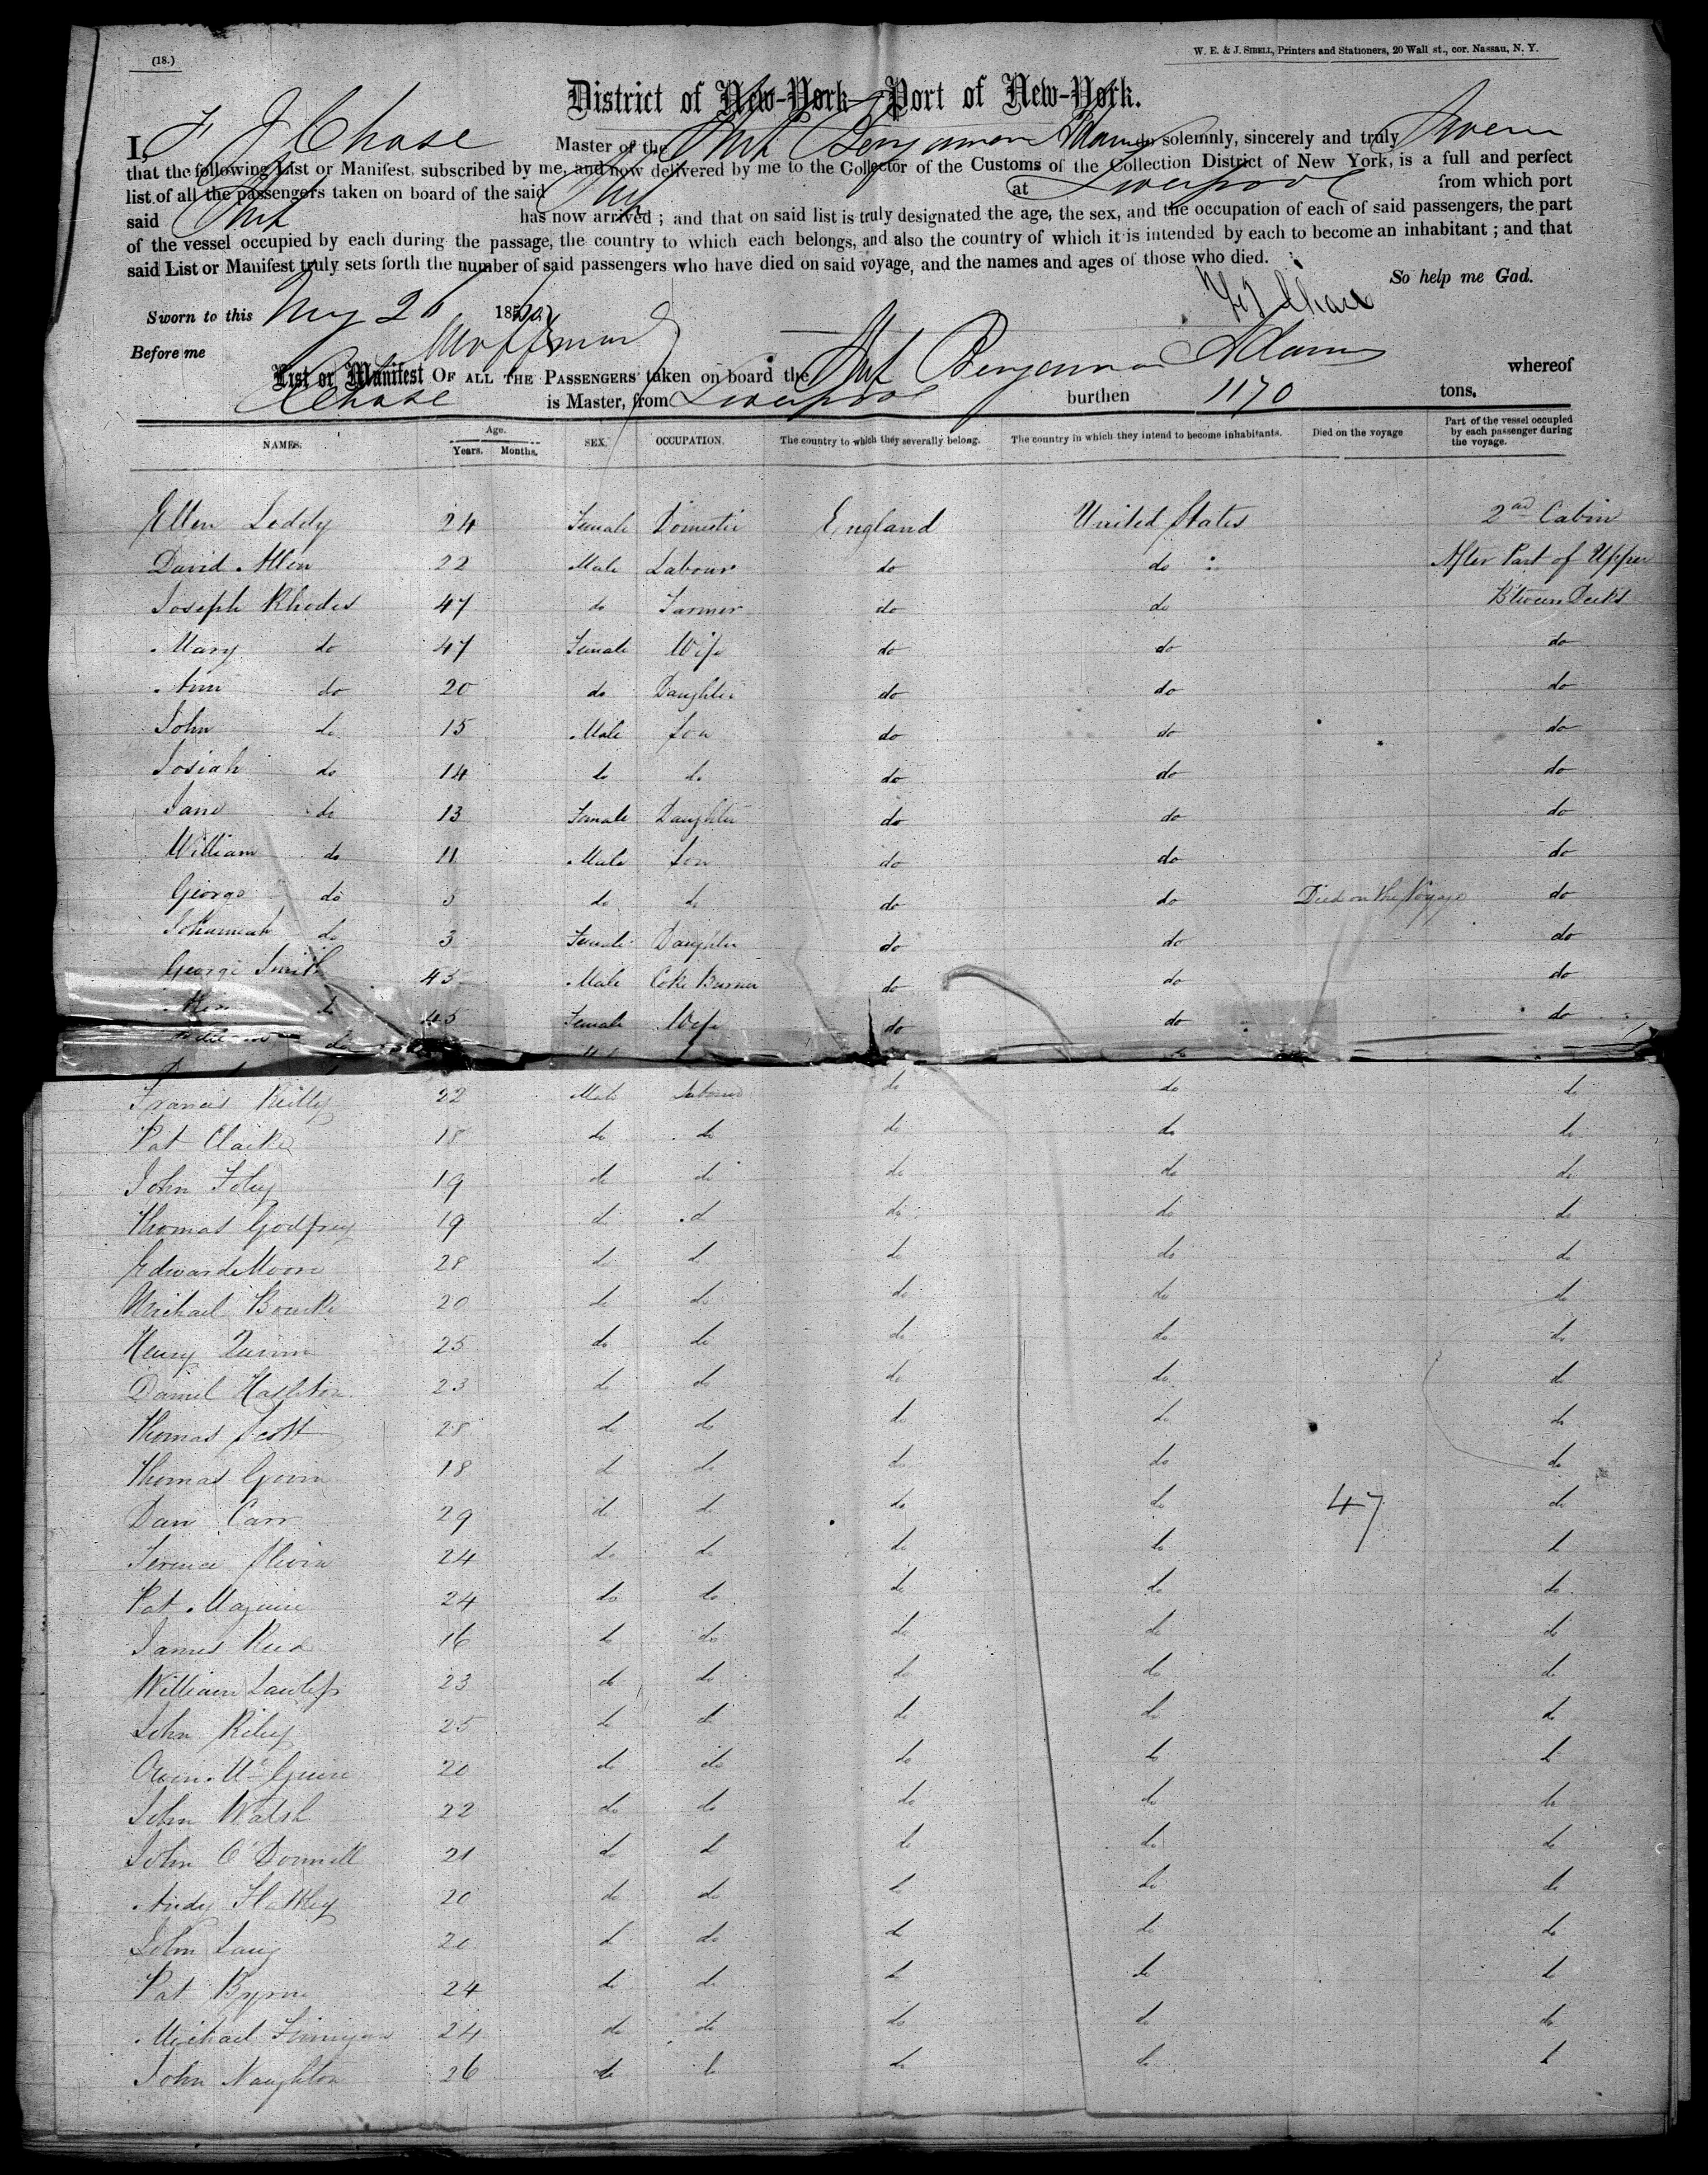 (18.)
W. E. & J. SIBELL, Printers and Stationers, 20 Wall st., cor. Nassau, N. Y.
District of New-York—Port of New-York.
I, J Chase Master of the Ship Benjamin Adams do solemnly, sincerely and truly Swear
that the following List or Manifest, subscribed by me, and now delivered by me to the Collector of the Customs of the Collection District of New York, is a full and perfect
list of all the passengers taken on board of the said Ship at Liverpool from which port
said Ship has now arrived; and that on said list is truly designated the age, the sex, and the occupation of each of said passengers, the part
of the vessel occupied by each during the passage, the country to which each belongs, and also the country of which it is intended by each to become an inhabitant; and that
said List or Manifest truly sets forth the number of said passengers who have died on said voyage, and the names and ages of those who died.
So help me God.
Sworn to this May 26 185
J Chase
Before me
List or Manifest OF ALL THE PASSENGERS taken on board the Ship Benjamin Adams whereof
Chase is Master, from Liverpool burthen 1170 tons.
NAMES. Age. Years. Months. SEX. OCCUPATION. The country to which they severally belong. The country in which they intend to become inhabitants. Died on the voyage Part of the vessel occupied by each passenger during the voyage.
Ellen Leddy 24 Female Domestic England United States 2nd Cabin
David Allen 22 Male Labour do do After Part of Upper
Joseph Rhodes 47 do Farmer do do Btween Decks
Mary do 47 Female Wife do do do
Ann do 20 do Daughter do do do
John do 15 Male Son do do do
Josiah do 14 do do do do do
Jane do 13 Female Daughter do do do
William do 11 Male Son do do do
George do 5 do do do do Died on the Voyage do
Johannah do 3 Female Daughter do do do
George Smith 45 Male Coke Burner do do do
do 45 Female Wife do do do
do
Francis Reilly 22 Male Labour do do do
Pat Clarke 18 do do do do do
John Foley 19 do do do do do
Thomas Godfrey 19 do do do do do
Edward Moore 28 do do do do do
Michael Bourke 20 do do do do do
Henry Quinn 25 do do do do do
Daniel Hasleton 23 do do do do do
Thomas Scott 28 do do do do do
Thomas 18 do do do do do
Dan Carr 29 do do do do 47 do
Terence Slevin 24 do do do do do
Pat Maguire 24 do do do do do
James Reed 16 do do do do do
William 23 do do do do do
John Riley 25 do do do do do
Owen McGuire 20 do do do do do
John Walsh 22 do do do do do
John O'Donnell 21 do do do do do
Andy Flattley 20 do do do do do
John Lang 20 do do do do do
Pat Byrne 24 do do do do do
Michael Finnigan 24 do do do do do
John Naughton 26 do do do do do